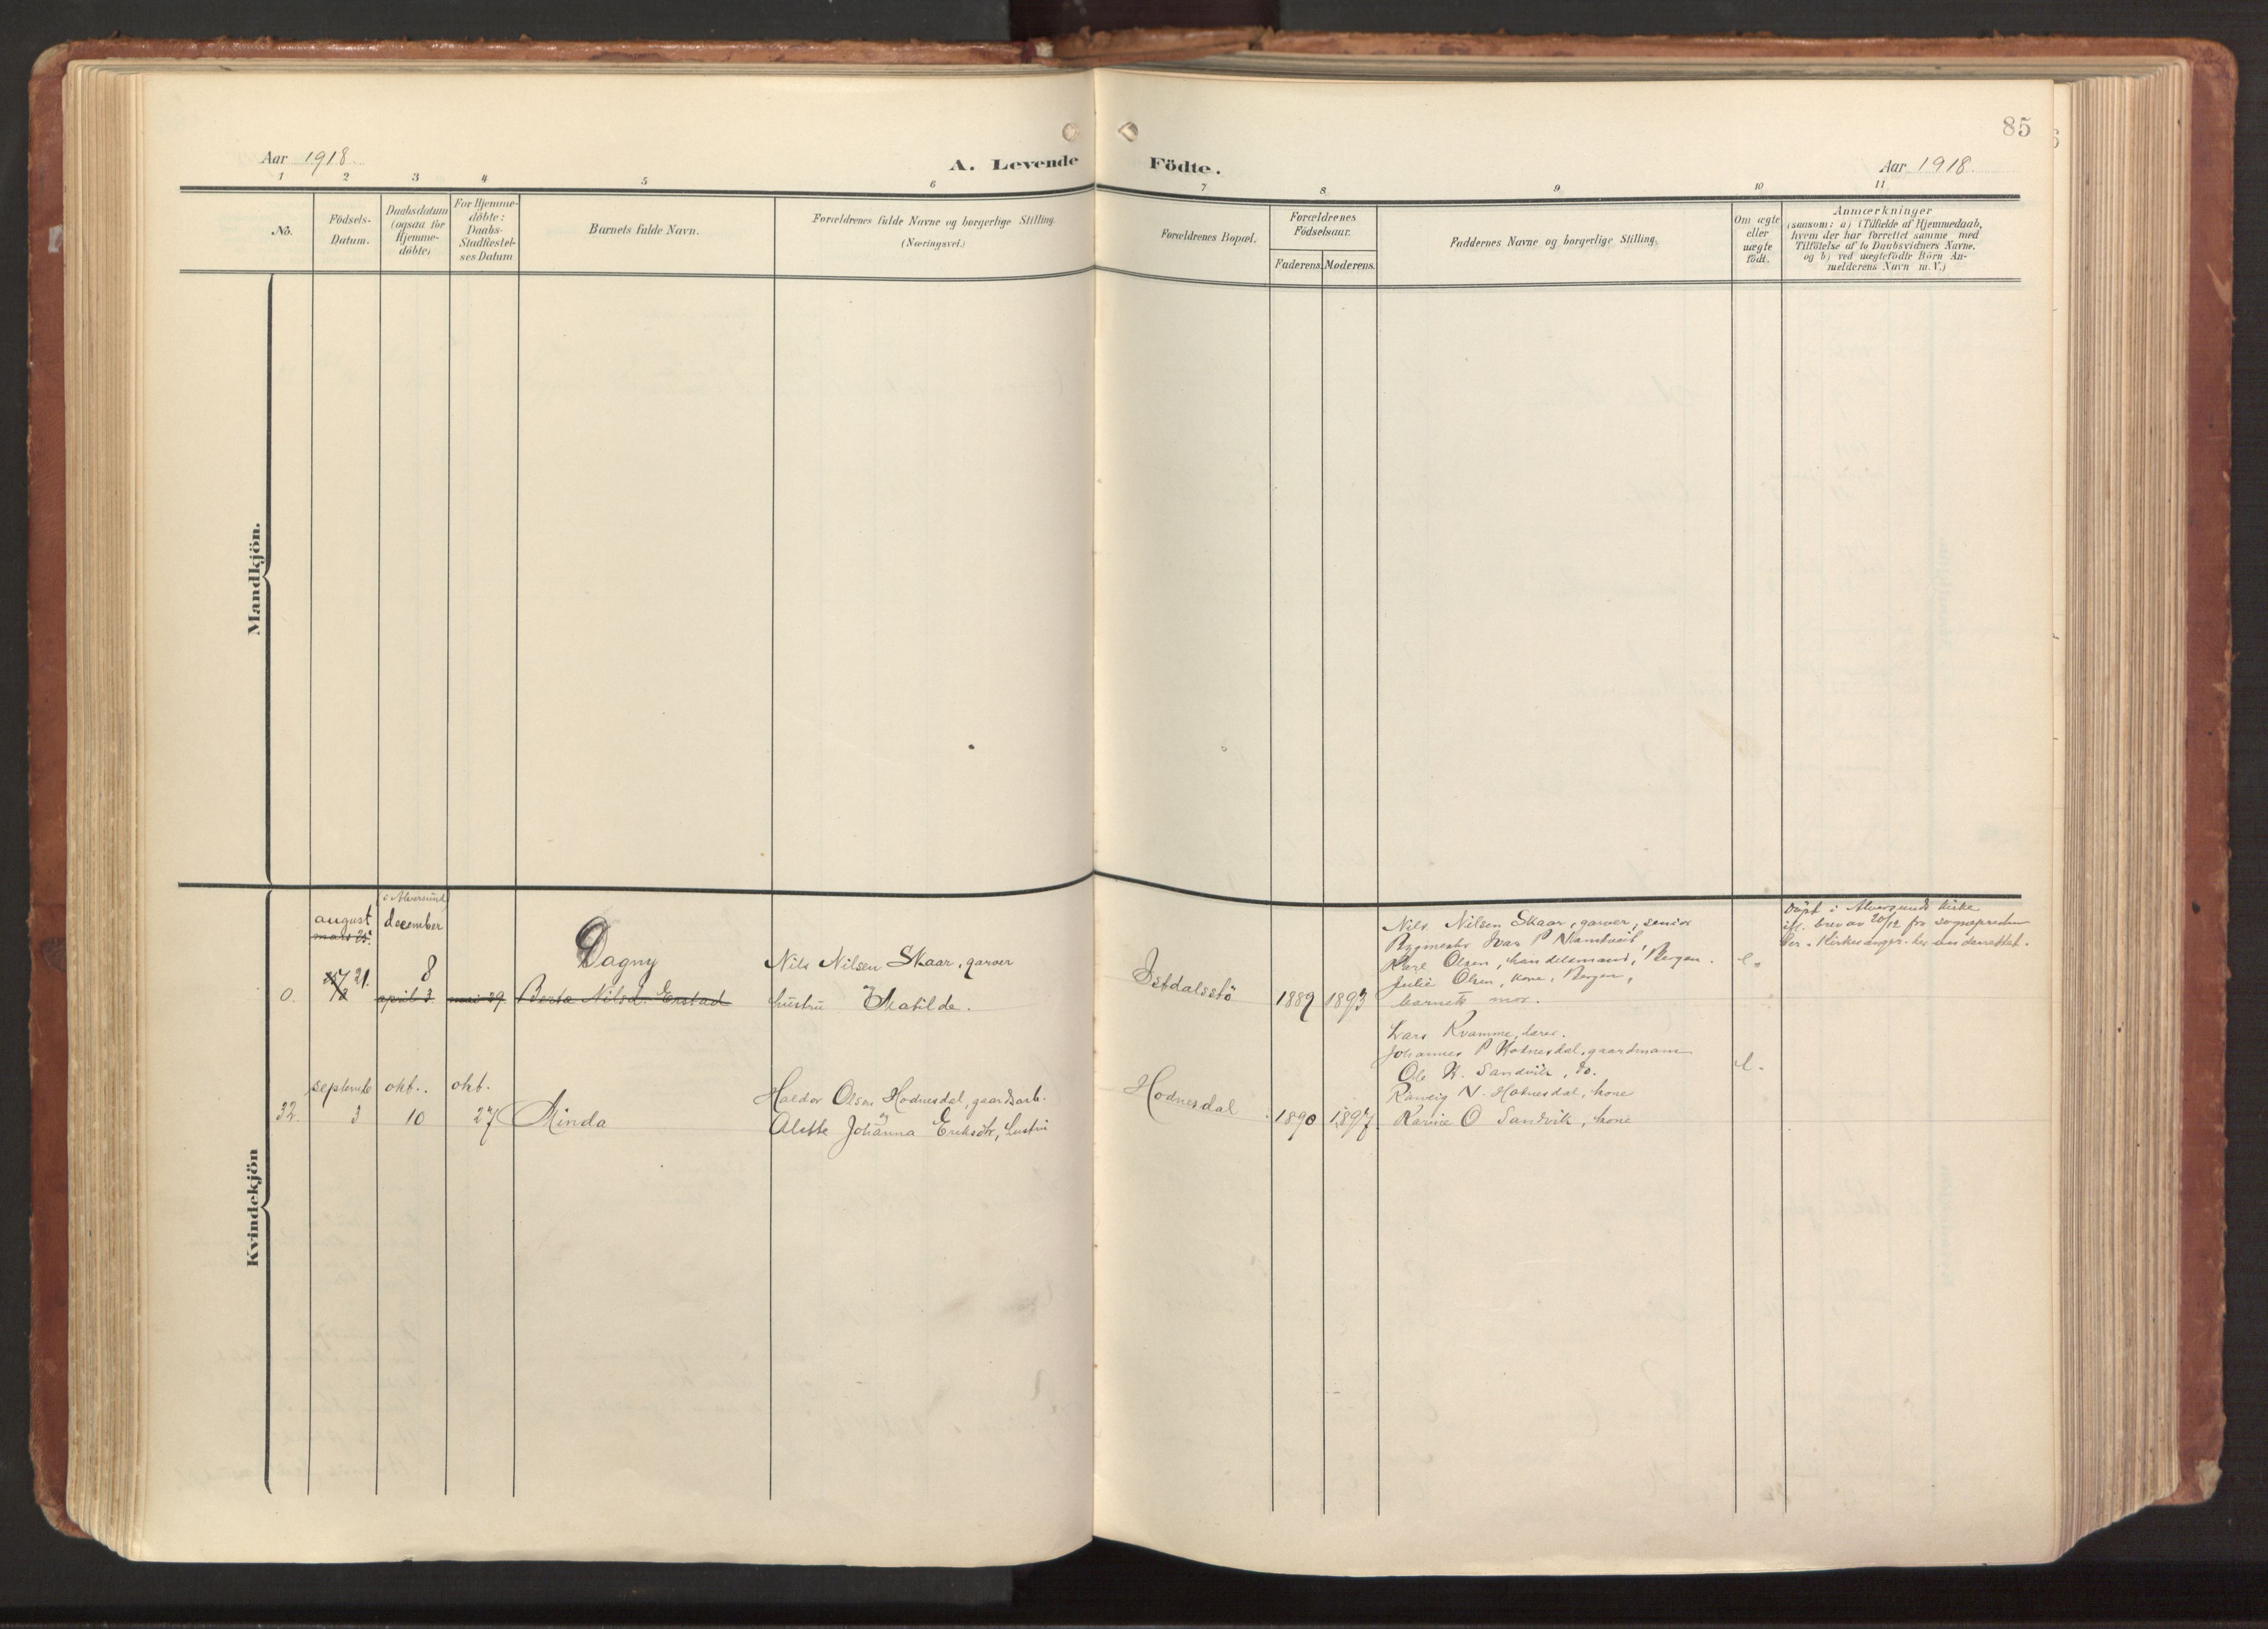 85
Aar 1918.
A. Levende Födte.
Aar 1918.
1 2 3 4 5 6 7 8 9 10 11
No.
Födsels-
Datum.
Daabsdatum
(ogsaa for
Hjemme-
döbte)
For Hjemme-
döbte:
Daabs-
Stadfæstel-
ses Datum
Barnets fulde Navn.
Forældrenes fulde Navne og borgerlige Stilling.
(Næringsvei.)
Forældrenes Bopæl.
Forældrenes
Födselsaar.
Faderens. Moderens.
Faddernes Navne og borgerlige Stilling.
Om ægte
eller
uægte
födt.
Anmærkninger
(saasom: a) i Tilfælde af Hjemmedaab,
hvem der har forrettet samme med
Tilföielse af to Daabsvidners Navne.
og b) ved uægtefödte Börn An-
melderens Navn m. V.)
Mandkjön.
Kvindekjön
0.
august
mars 25.
21.
i Alversund
december
8
april 3
mai 29
Dagny
Berta Nilsd. Erstad
Nils Nilsen Skaar, garver
hustru Matilde.
Isdalsstö
1889 1893
Nils Nilsen Skaar, garver, senior
Ivar P
Karl Olsen, handelsmand, Bergen.
Julie Olsen, kone, Bergen,
barnets mor.
e.
Döpt i Alversunds kirke
ifl. brev av 20/12 fra sognepresten
32.
september
3
okt..
10
okt.
27
Rinda
Haldor Olsen Hodnesdal, gaardsarb.
og
Alette Johanna Eriksdtr, hustru
Hodnesdal
1890 1897
Lars Kvamme, lærer.
Johannes P Hodnesdal, gaardmann
Ole N. Sandvik, do.
N. Hodnesdal, kone
Karine O Sandvik, kone
e.